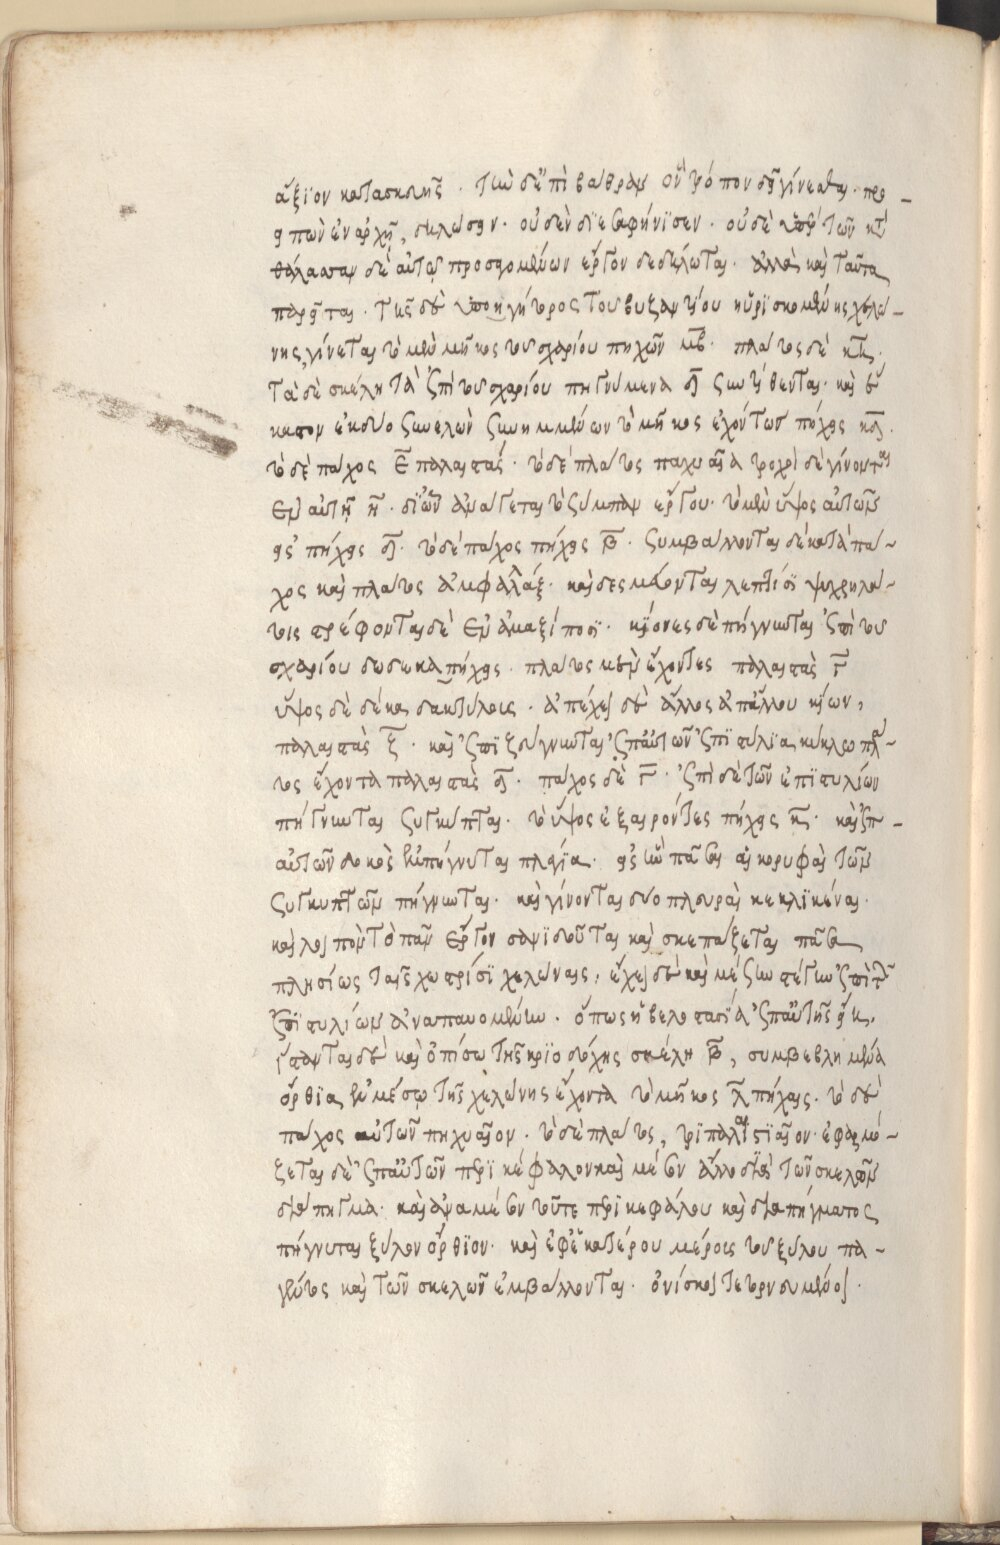 ἄξϊον κατασκευῆς · τὴν δὲ ἐπὶ βάθραν ὃν τρόπον δεῖ γίνεσθαι · προ-
ειπὼν ἐν ἀρχῇ, δηλώσειν · οὐδὲν διεσαφήνϊσεν · οὐδὲ ὑπὲρ τῶν κατὰ
θάλασσαν δὲ αὐτῷ προσαγομένων ἔργον δεδήλωται · ἀλλὰ καὶ ταῦτα
παρεῖται · τῆς δὲ ὑπὸ ἡγήτορος τοῦ βυζαντίου ηὑρϊσκομένης χελώ-
νης, γίνεται τὸ μὲν μῆκος τοῦ σχαρίου πηχῶν μβ · πλάτος δὲ κη ·
τὰ δὲ σκέλη τὰ ἐπὶ τοῦ σχαρίου πηγνύμενα δ συντίθενται · καὶ ἓν
καστον ἐκ δύο ξύλων συνημμένων τὸ μῆκος ἐχόντων πήχεις κδ ·
τὸ δὲ πάχος ε παλαιστάς · τὸ δὲ πλάτος παχυαῖα τροχοὶ δὲ γίνονται
ἐν αὐτῇ η · δϊ ὧν ἀνάγεται τὸ σύμπαν ἔργου · τὸ μὲν ὕψος αὐτῶν
εἰς πήχεις δ · τὸ δὲ πάχος πήχεις β · συμβάλλονται δὲ κατὰ πά-
χος καὶ πλάτος ἀμφαλλάξ · καὶ δεσμεύονται λεπίσϊ ψυχρηλά-
τοις στρέφονται δὲ ἐν ἁμαξίποσϊ · κίονες δὲ πήγνυνται ἐπὶ τοῦ
σχαρίου δωδεκαπήχεις · πλάτος μὲν ἔχοντες παλαιστὰς γ
ὕψος δὲ δέκα δακτύλους · ἀπέχει δὲ ἄλλος ἀπ ἄλλου κίων,
παλαιστὰς ζ · καὶ ἐπϊζεύγνυνται ἐπ αὐτῶν ἐπϊστύλϊα κύκλω πλά-
τος ἔχοντα παλαιστὰς δ · πάχος δὲ γ · ἐπὶ δὲ τῶν ἐπϊστυλίων
πήγνυνται συγκύπται · τὸ ὕψος ἐξαίροντες πήχεις η · καὶ ἐπ-
αὐτῶν δοκὸς ἐνπήγνυται πλαγία · εἰς ἣν πᾶσαι αἱ κορυφαὶ τῶν
συγκυπτῶν πήγνυνται · καὶ γίνονται δύο πλευραὶ κεκλϊμέναι ·
καὶ λοιπὸν τὸ πᾶν ἔργον σανϊδοῦται καὶ σκεπάζεται πᾶσα
πλησίως ταῖς χωστρίσϊ χελώναις, ἔχει δὲ καὶ μέσην στέγην ἐπὶ τῶν
ἐπϊστυλίων ἀναπαυομένην · ὅπως ἡ βελοστασία ἐπ αὐτῆς ᾖ ·
ἵστανται δὲ καὶ ὀπίσω τῆς κρϊοδόχης σκέλη β, συμβεβλημένα
ὄρθϊα ἐν μέσῳ τῆς χελώνης ἔχοντα τὸ μῆκος λ πήχεις · τὸ δὲ
πάχος αὐτῶν πηχυαῖον · τὸ δὲ πλάτος, τρϊπαλαιστϊαῖον · ἐφαρμό-
ζεται δὲ ἐπ αὐτῶν περϊκέφαλον καὶ μέσον ἄλλο διὰ τῶν σκελῶν
διάπηγμα · καὶ ἀνα μέσον τοῦτε περϊκεφάλου καὶ διαπήγματος
πήγνυται ξύλον ὄρθϊον · καὶ ἐφ ἑκατέρου μέρους τοῦ ξύλου πα-
γέντος καὶ τῶν σκελῶν ἐμβάλλονται · ὀνίσκοι τετορνευμένοι ·